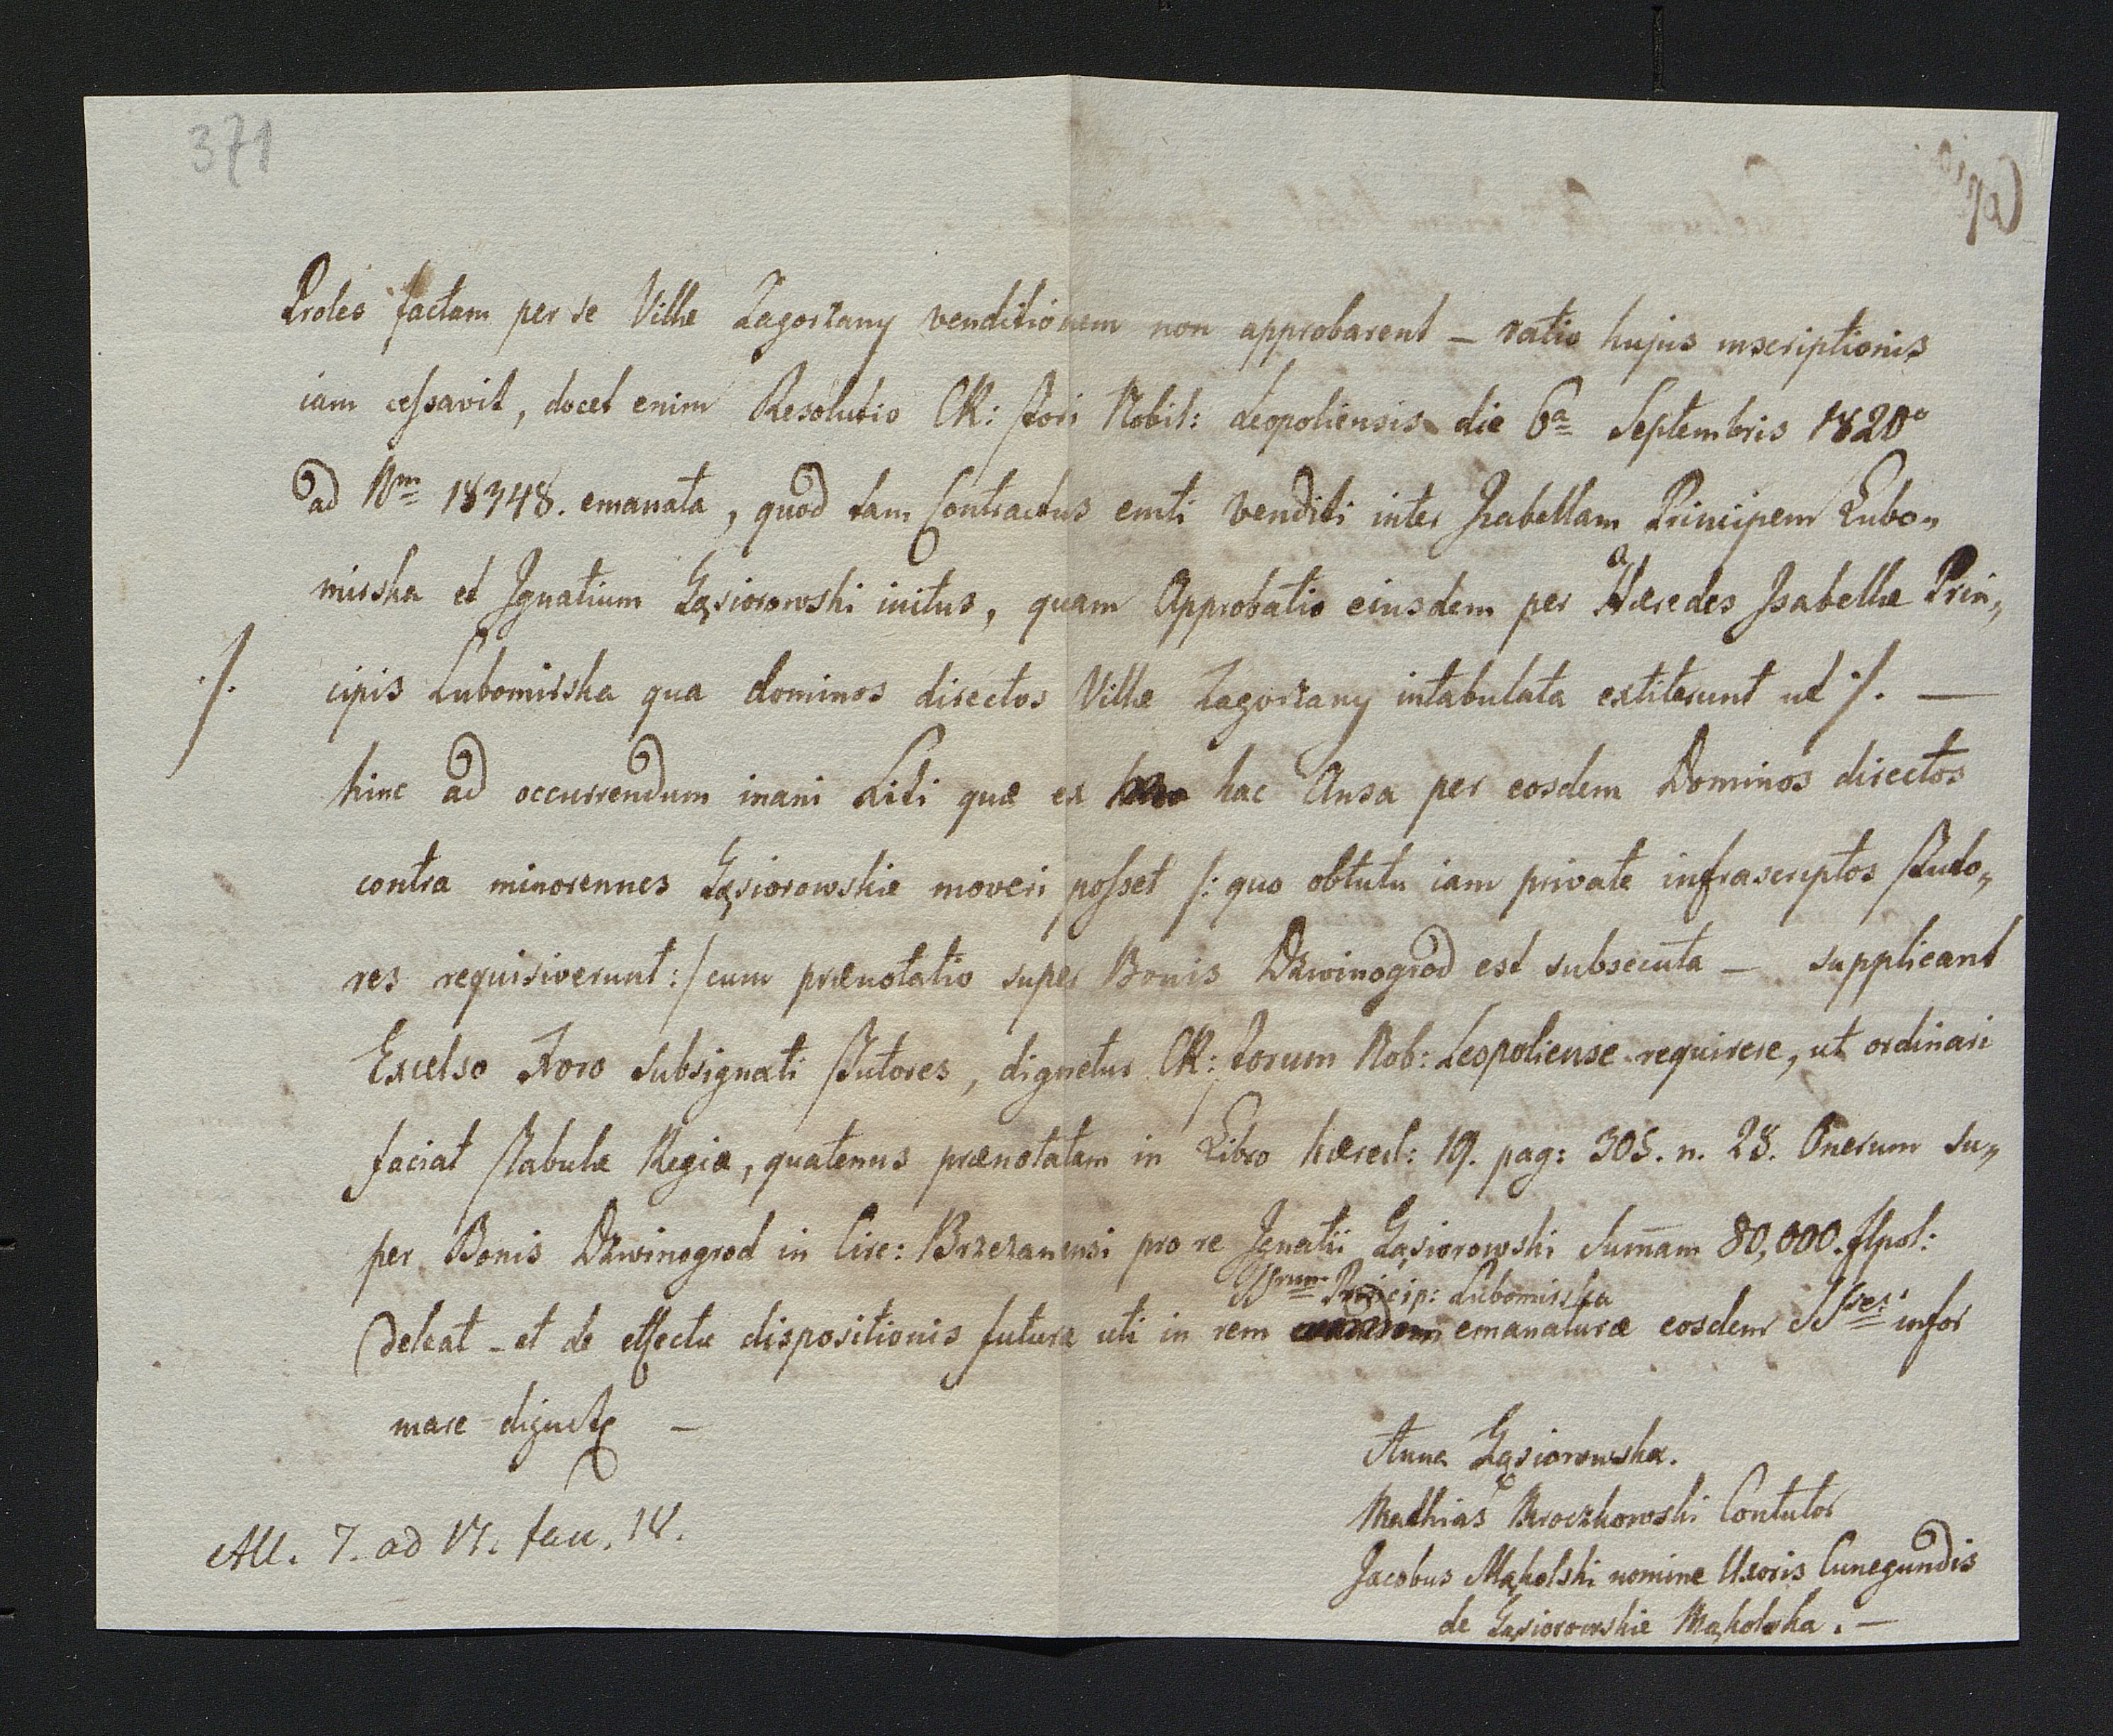 371
Proles factam per se Villæ Zagorzany venditionem non approbarent – ratio hujus inscriptionis
iam cessavit, docet enim Resolutio CR: Fori Nobil: Leopoliensis die 6ª Septembris 1820º
ad Nm 18348. emanata, quod tam Contractus emti venditi inter Isabellam Principem Lubo„
mirska et Ignatium Gąsiorowski initus, quam Approbatio eiusdem per Hæredes Isabellæ Prin„
./. cipis Lubomirska qua dominos directos Villæ Zagorzany intabulata extiterunt ut ./. —
hinc ad occurrendum inani Liti quæ ex hac Ansa per eosdem Dominos directos
contra minorennes Gąsiorowskie moveri posset /: quo obtutu iam private infrascriptos Tuto„
res requisiverunt :/ cum prænotatio super Bonis Dzwinogrod est subsecuta – supplicant
Excelso Foro subsignati Tutores, dignetur CR: Forum Nob: Leopoliense requirere, ut ordinari
faciat Tabulæ Regiæ, quatenus prænotatam in Libro hæred: 19. pag: 305. n. 28. Onerum su„
per Bonis Dzwinogrod in Circ: Brzezanensi pro re Ignatii Gąsiorowski Sum̄am 80,000. flpol:
Princip: Lubomirska
Deleat – et de effectu dispositionis futuræ uti in rem emanaturæ eosdem infor
mare dignetur –
Anna Gąsiorowska.
Mathias Mroczkowski Contutor
Jacobus Mąkolski nomine Uxoris Cunegundis
de Gąsiorowskie Mąkolska. –
All. 7. ad 17. fau. 18.